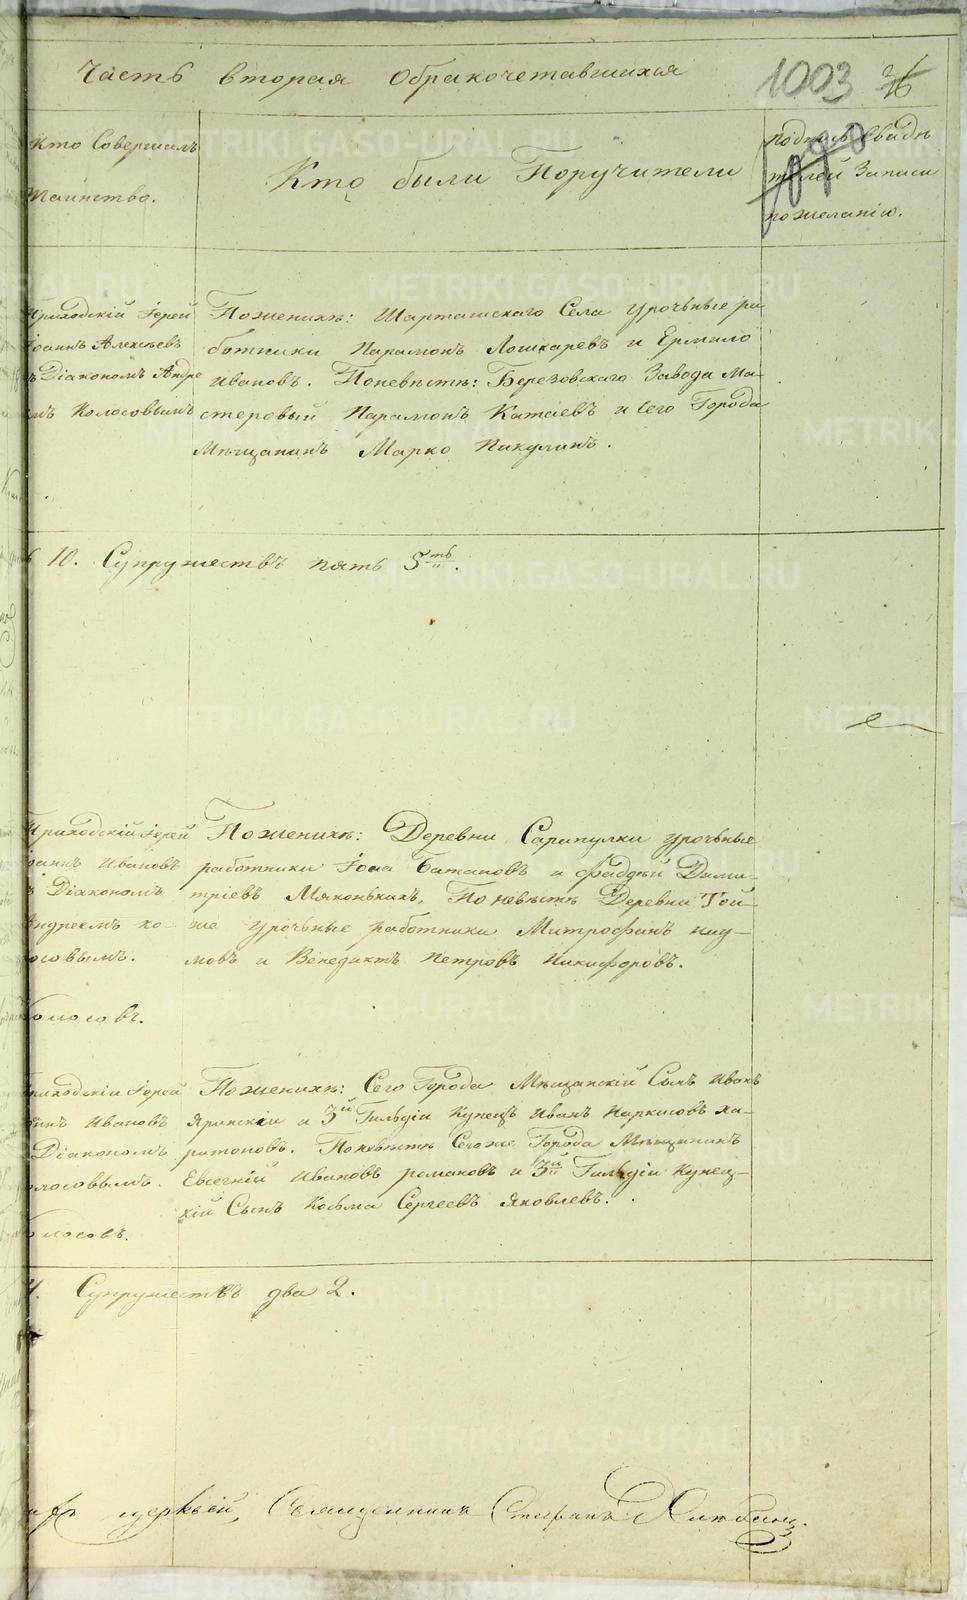 Часть вторая Обракочетавшихся
1003
Кто Совершалъ
Таинство.
Кто были Поручители
подпись свидѣ
телей Записи
по желанію.
Приходскій Іерей
Іоаннъ Алексѣевъ
съ Діакономъ Андре
емъ Колосовымъ
По женихѣ: Шарташскаго Села урочьные ра
ботники Парамонъ Лошкаревъ и Ермило
Ивановъ. По невѣстѣ: Березовскаго Завода Ма-
стеровый Парамонъ Катаевъ и сего Города
Мѣщанинъ Марко Никулинъ.
10. Супружествъ пять 5ть.
Приходскій Іерей
Іоаннъ Ивановъ
съ Діакономъ
Андреемъ Ко-
лосовымъ.
Колосовъ.
По женихѣ: Деревни Сарапулки урочьные
работники Іона Батановъ и Фаддѣй Дими-
тріевъ Мяконькихъ, По невѣстѣ Деревни Той
же урочьные работники Митрофанъ
и Венедиктъ Петровъ Никифоровъ.
Приходскій Іерей
Іоаннъ Ивановъ
Діакономъ
Колосовымъ.
Колосовъ.
По женихѣ: Сего Города Мѣщанскій Сынъ Иванъ
Яринскій и 3й Гильдіи Купецъ Иванъ Наркисовъ Ха-
ритоновъ. По невѣстѣ Сего же Города Мѣщанинъ
Евгеній Ивановъ Романовъ и 3й Гильдіи Купец-
кій Сынъ Косьма Сергеевъ Яковлевъ.
Супружествъ два 2.
церквей, Священникъ Стефанъ Хлюбинъ.
METRIKI.GASO-URAL.RU